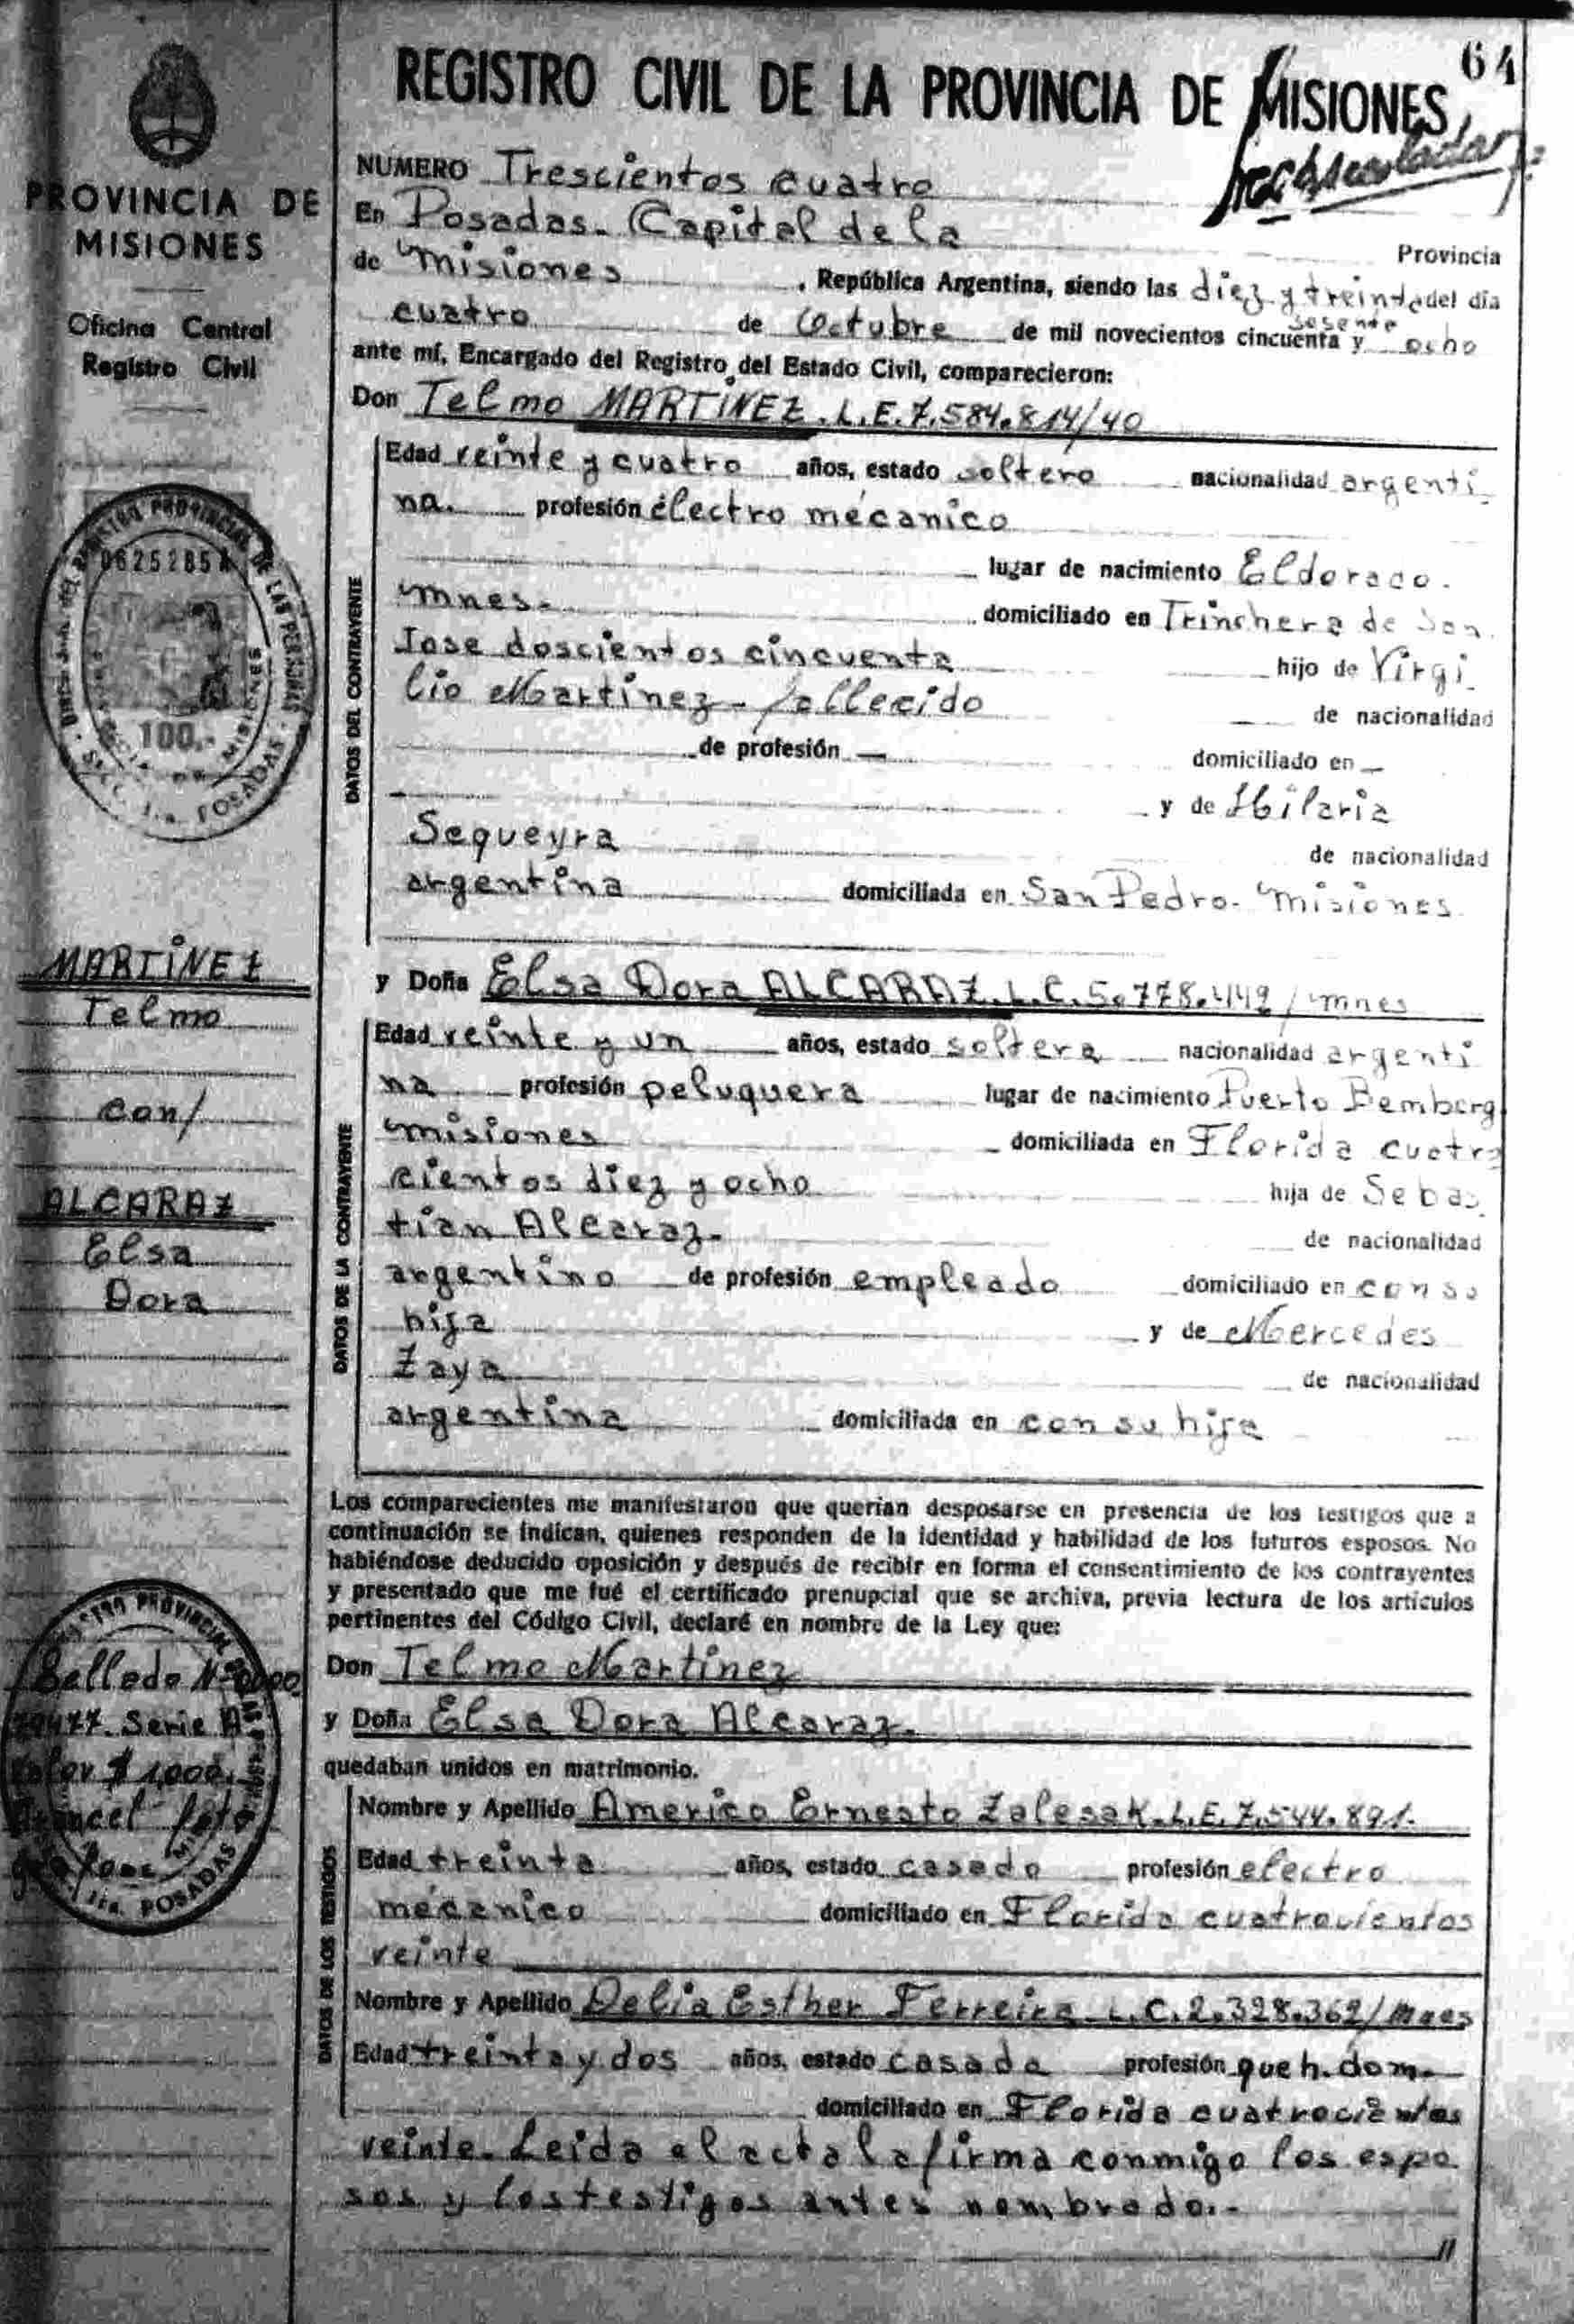 64
REGISTRO CIVIL DE LA PROVINCIA DE MISIONES
PROVINCIA DE
MISIONES
Oficina Central
Registro Civil
0625285A
100.-
MARTINEZ
Telmo
con/
ALCARAZ
Elsa
Dora
Sellado Nº 0000
79477 Serie A
Valor $ 1,000.
POSADAS
NUMERO Trescientos cuatro
En Posadas. Capital de la Provincia
de Misiones, República Argentina, siendo las diez y treinta del día
sesenta
cuatro de Octubre de mil novecientos cincuenta y ocho
ante mí, Encargado del Registro del Estado Civil, comparecieron:
Don Telmo MARTINEZ. L.E.7.584.814/40
DATOS DEL CONTRAYENTE
Edad veinte y cuatro años, estado soltero nacionalidad argenti
na. profesión électro mécanico
lugar de nacimiento Eldorado.
mnes. domiciliado en Trinchera de San
Jose doscientos cincuenta hijo de Virgi
lio Martinez - fallecido de nacionalidad
de profesión — domiciliado en —
y de Hilaria
Sequeyra de nacionalidad
argentina domiciliada en San Pedro. Misiones
y Doña Elsa Dora ALCARAZ. L.C.5.778.449/mnes
DATOS DE LA CONTRAYENTE
Edad veinte y un años, estado soltera nacionalidad argenti
na profesión peluquera lugar de nacimiento Puerto Bemberg
misiones domiciliada en Florida cuatro
cientos diez y ocho hija de Sebas
tian Alcaraz. de nacionalidad
argentino de profesión empleado domiciliado en con su
hija y de Mercedes
Zaya de nacionalidad
argentina domiciliada en con su hija
Los comparecientes me manifestaron que querían desposarse en presencia de los testigos que a
continuación se indican, quienes responden de la identidad y habilidad de los futuros esposos. No
habiéndose deducido oposición y después de recibir en forma el consentimiento de los contrayentes
y presentado que me fué el certificado prenupcial que se archiva, previa lectura de los artículos
pertinentes del Código Civil, declaré en nombre de la Ley que:
Don Telmo Martinez
y Doña Elsa Dora Alcaraz.
quedaban unidos en matrimonio.
DATOS DE LOS TESTIGOS
Nombre y Apellido Americo Ernesto Zalesak. L.E.7.544.891.
Edad treinta años, estado casado profesión electro
mécanico domiciliado en Florida cuatrocientos
veinte
Nombre y Apellido Delia Esther Ferreira L.C.2.328.362/mnes
Edad treinta y dos años, estado casada profesión queh. dom.
domiciliado en Florida cuatrocientos
veinte. Leida el acta la firma conmigo los espo
sos y los testigos antes nombrado.-
//